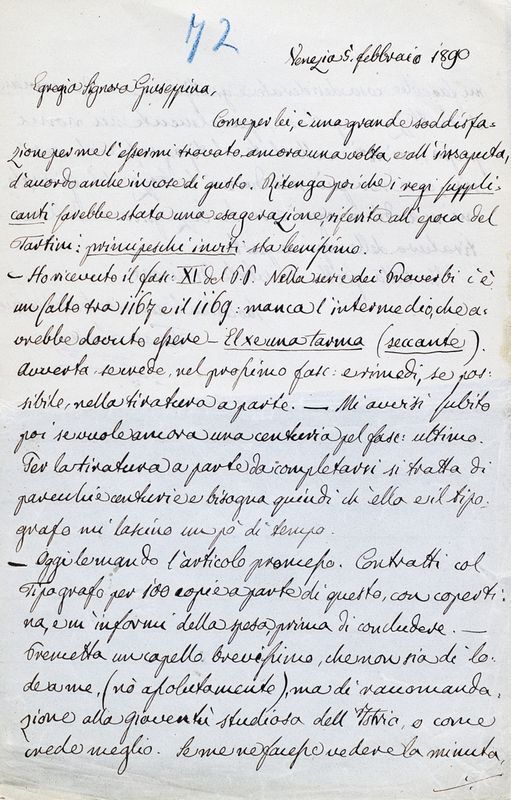 72
Venezia 5. febbraio 1890
Egregia Signora Giuseppina,
Come per lei, è una grande soddisfa-
zione per me l'essermi trovato ancora una volta, e all'insaputa,
d'accordo anche in cose di gusto. Ritenga poi che i regi suppli-
canti sarebbe stata una esagerazione, riferita all'epoca del
Tartini: principeschi inviti sta benissimo.
— Ho ricevuto il fasc: XI del P. P. Nella serie dei Proverbi c'è
un salto tra 1167 e il 1169: manca l'intermedio, che a-
vrebbe dovuto essere — El xe una tarma (seccante).
Avverta se crede, nel prossimo fasc: e rimedi, se pos-
sibile, nella tiratura a parte. — Mi avvisi subito
poi se vuole ancora una centuria pel fasc: ultimo.
Per la tiratura a parte da completarsi si tratta di
parecchie centurie e bisogna quindi ch'ella e il tipo-
grafo mi lascino un pò di tempo.
— Oggi le mando l'articolo promesso. Contratti col
Tipografo per 100 copie a parte di questo, con coperti-
na, e m'informi della spesa prima di concludere. —
Premetta un capello brevissimo, che non sia di lo-
de a me, (nò assolutamente), ma di raccomanda-
zione alla gioventù studiosa dell'Istria, o come
crede meglio. Se me ne facesse vedere la minuta,